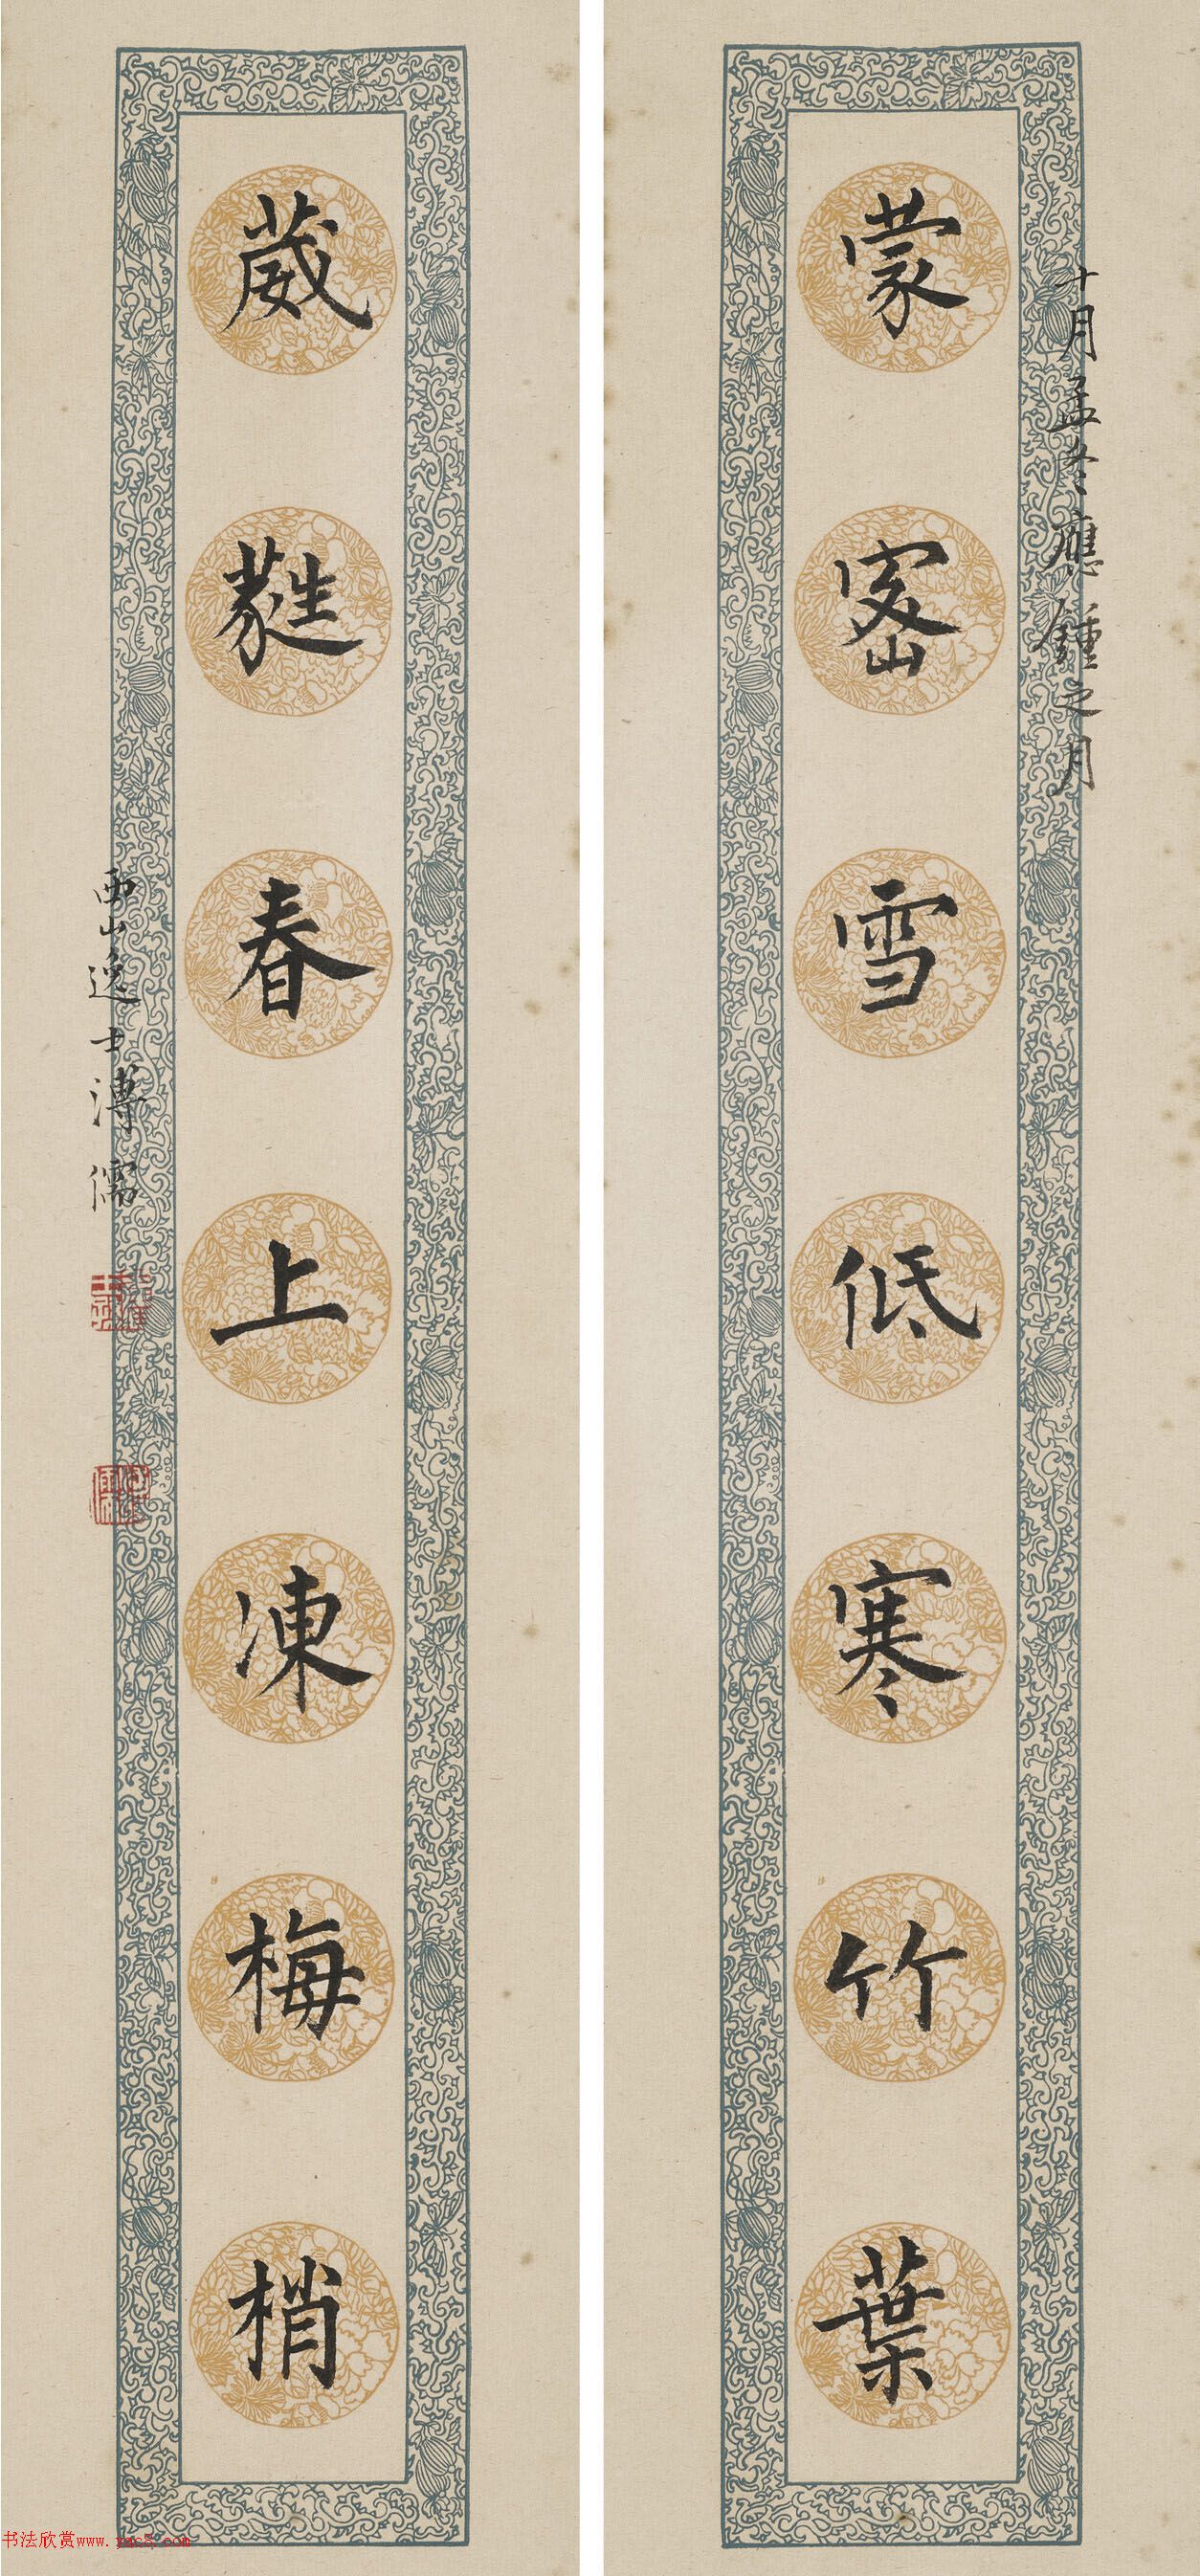 十月孟冬應鍾之月
蒙密雪低寒竹葉
葳蕤春上凍梅梢
西山逸士溥儒
书法欣赏www.yac8.com